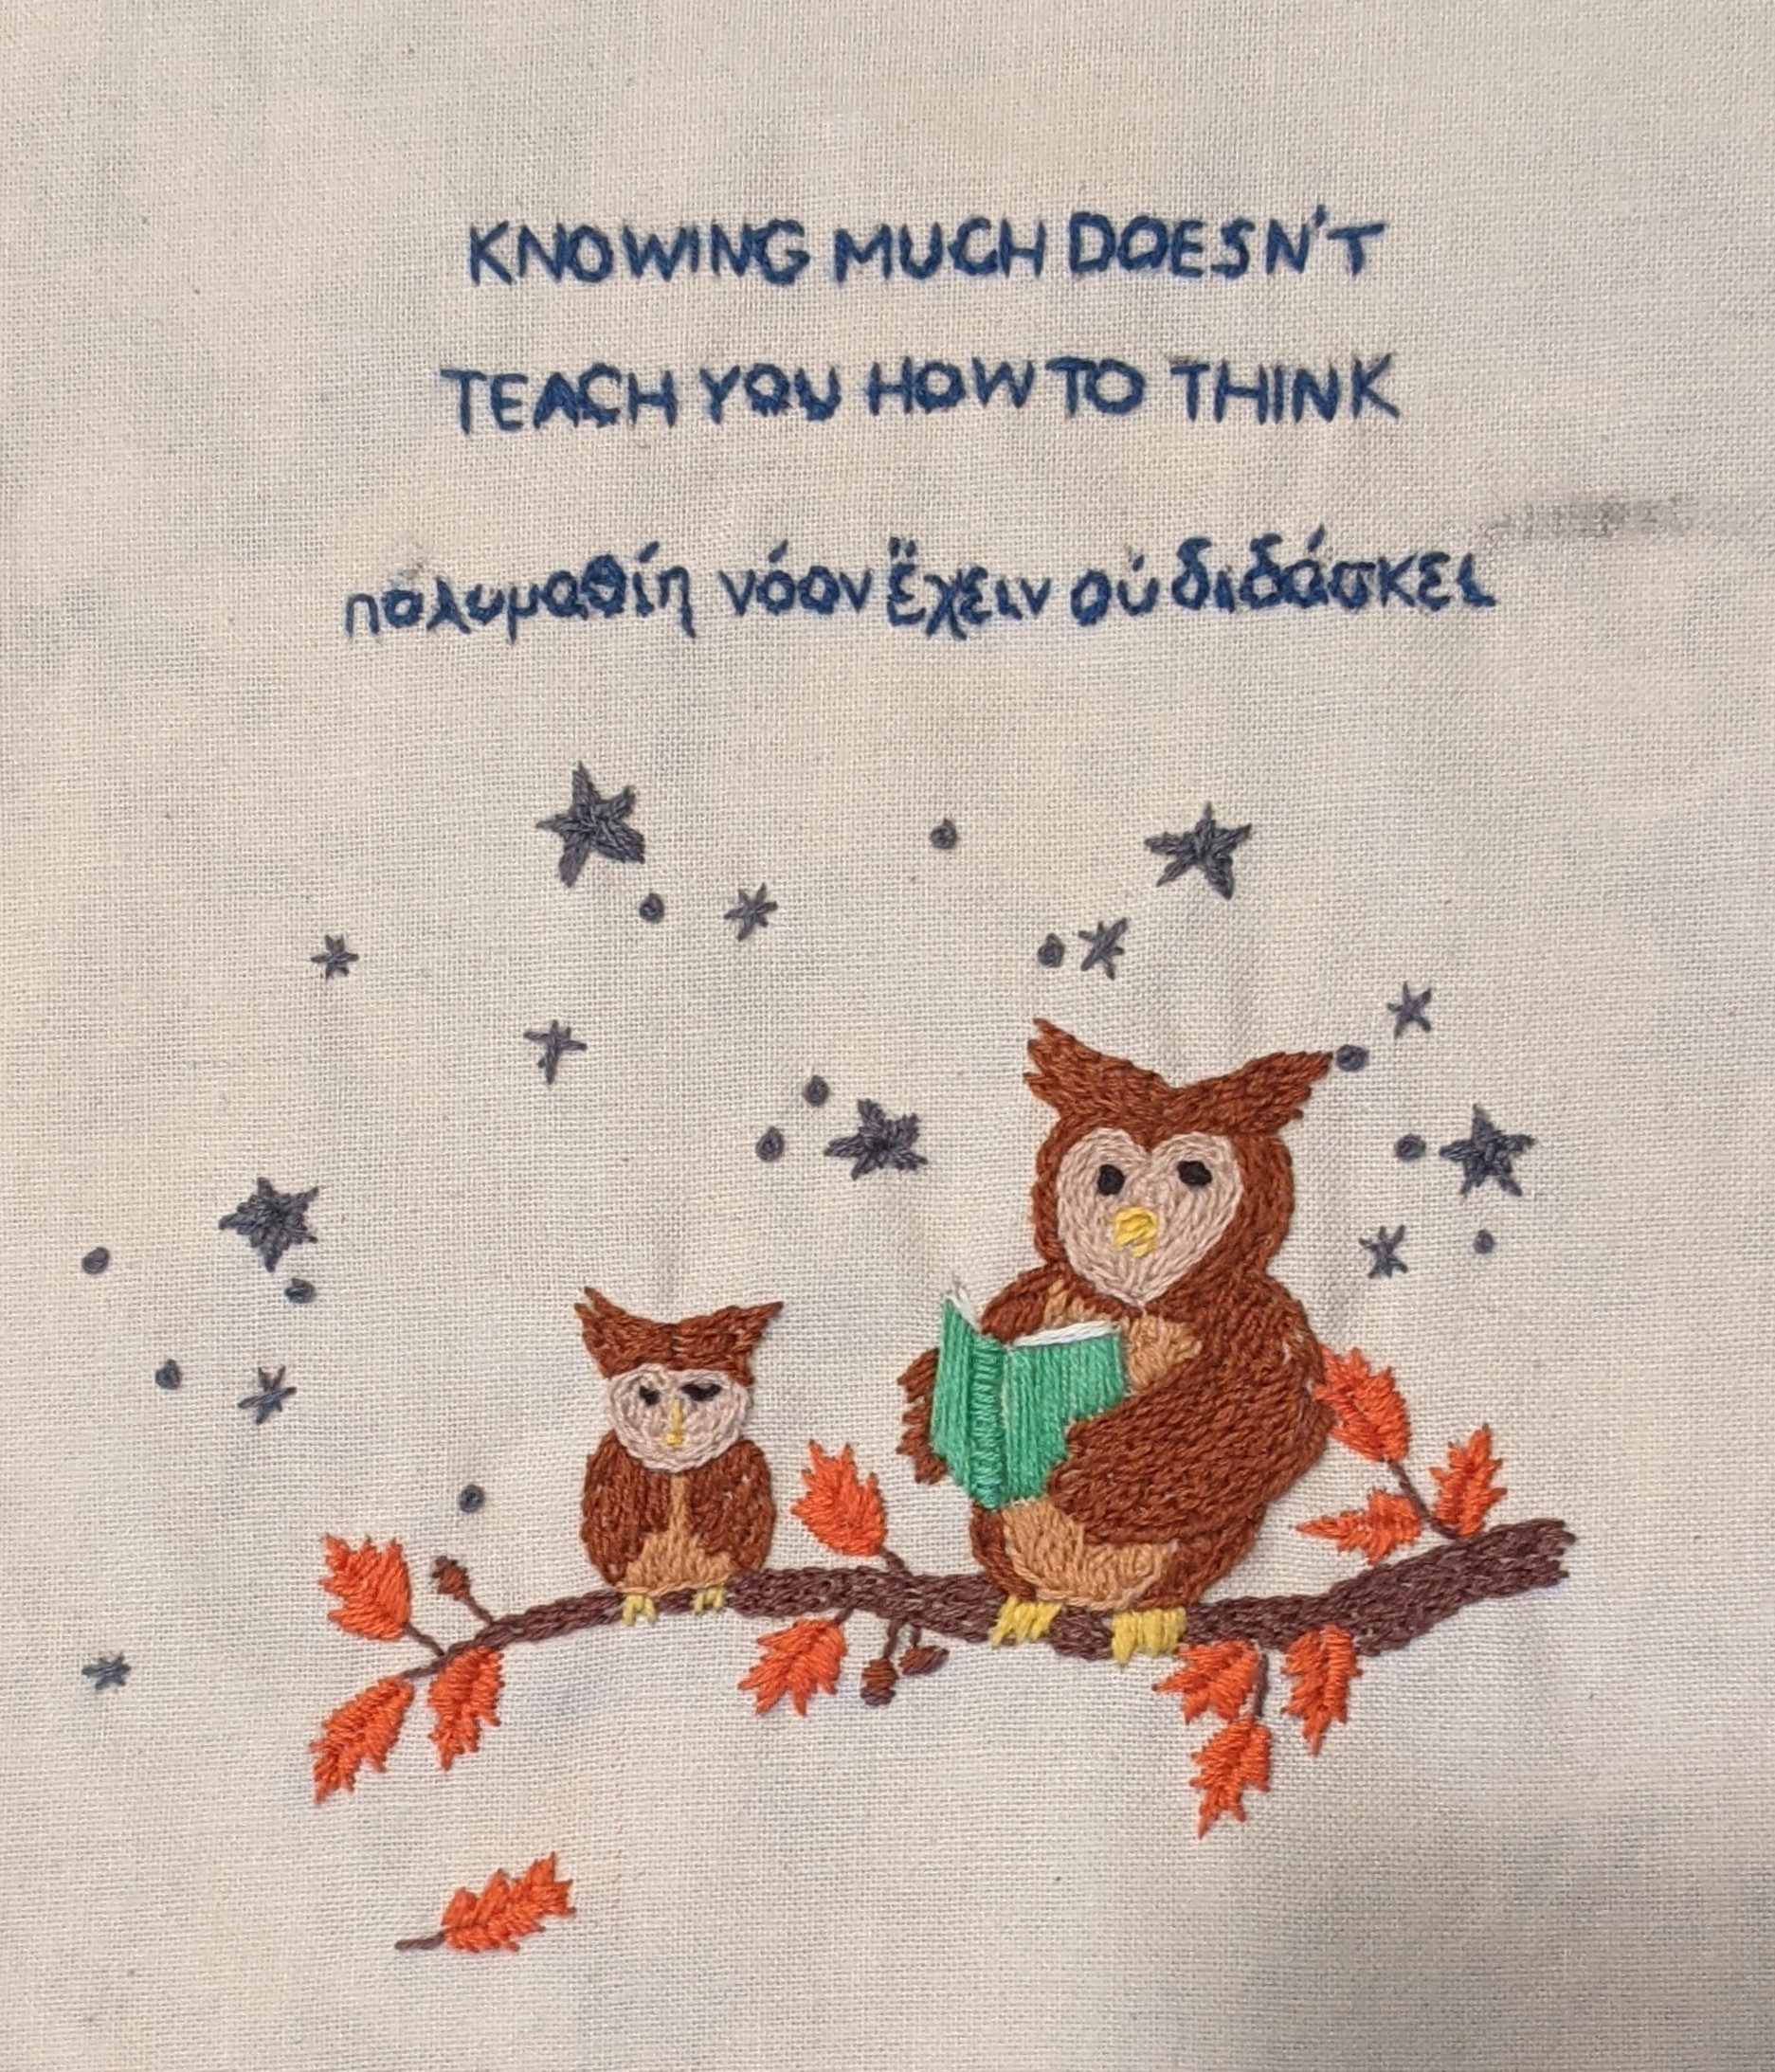 KNOWING MUCH DOESN'T
TEACH YOU HOW TO THINK
πολυμαθίη νόον ἔχειν οὐ διδάσκει